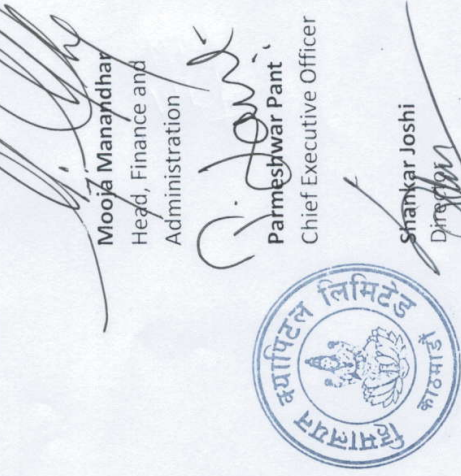 Mooja Manandhar
Head, Finance and
Administration
Parmeshwar Pant
Chief Executive Officer
Shankar Joshi
Director
हिमालयन क्यापिटल लिमिटेड
काठमाडौं